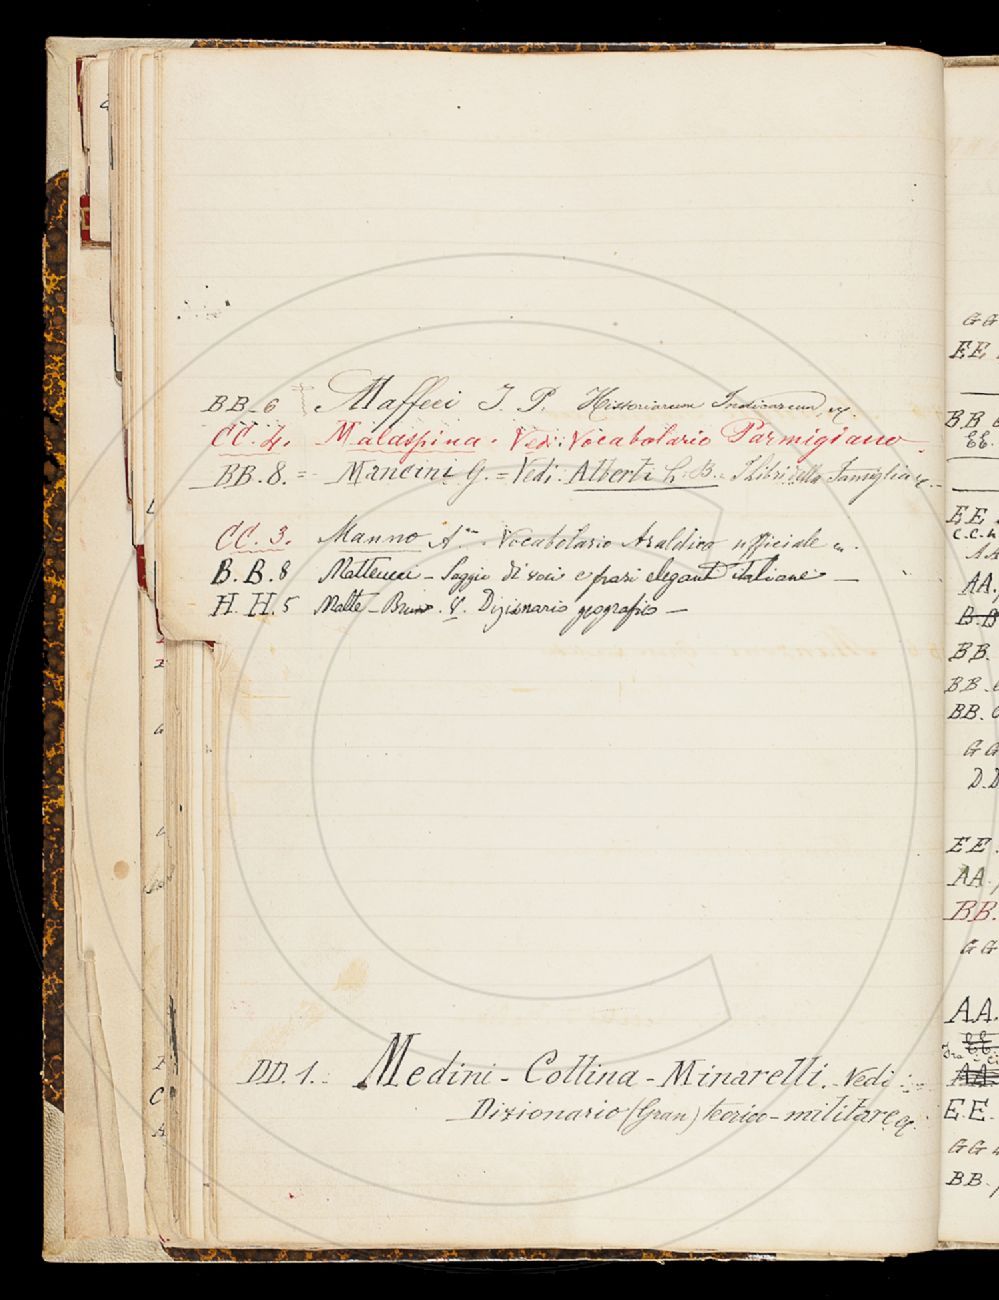 BB_6 Maffeii J. P. Historiarum Indicarum &.
CC. 4. Malaspina. Vedi: Vocabolario Parmigiano
BB. 8. = Mancini G. = Vedi: Alberti L. B. I Libri della Famiglia &.
CC. 3. Manno A. Vocabolario Araldico ufficiale
B. B. 8 Matteucci - Saggio di voci e frasi eleganti italiane —
H. H. 5 Malte - Brun. Dizionario geografico —
DD. 1. Medini - Collina - Minarelli. Vedi:
Dizionario (Gran) teorico - militare &.
GG
EE
BB
EE.
EE
C.C.4
AA
AA.
B.B
BB.
BB
BB.
GG
D.D
EE
AA
BB.
GG
AA.
EE
AA
E.E
GG
BB